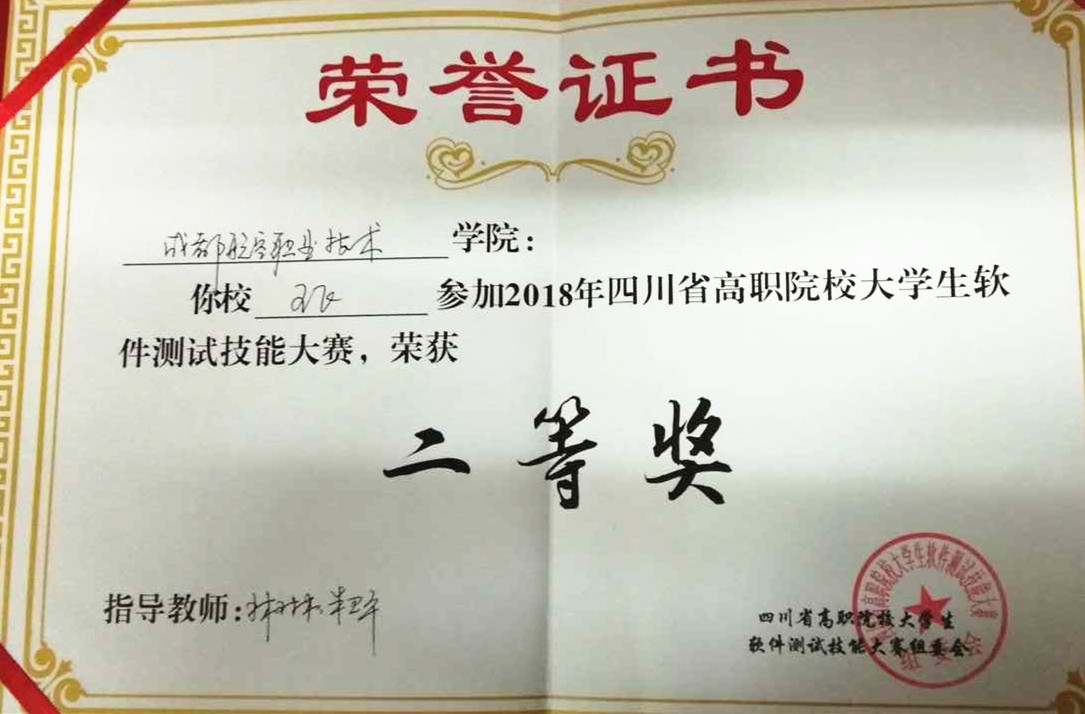 荣誉证书
成都航空职业技术学院：
你校 参加2018年四川省高职院校大学生软
件测试技能大赛，荣获
二等奖
指导教师:
四川省高职院校大学生
软件测试技能大赛组委会
高职院校大学生软件测试技能大赛
组委会